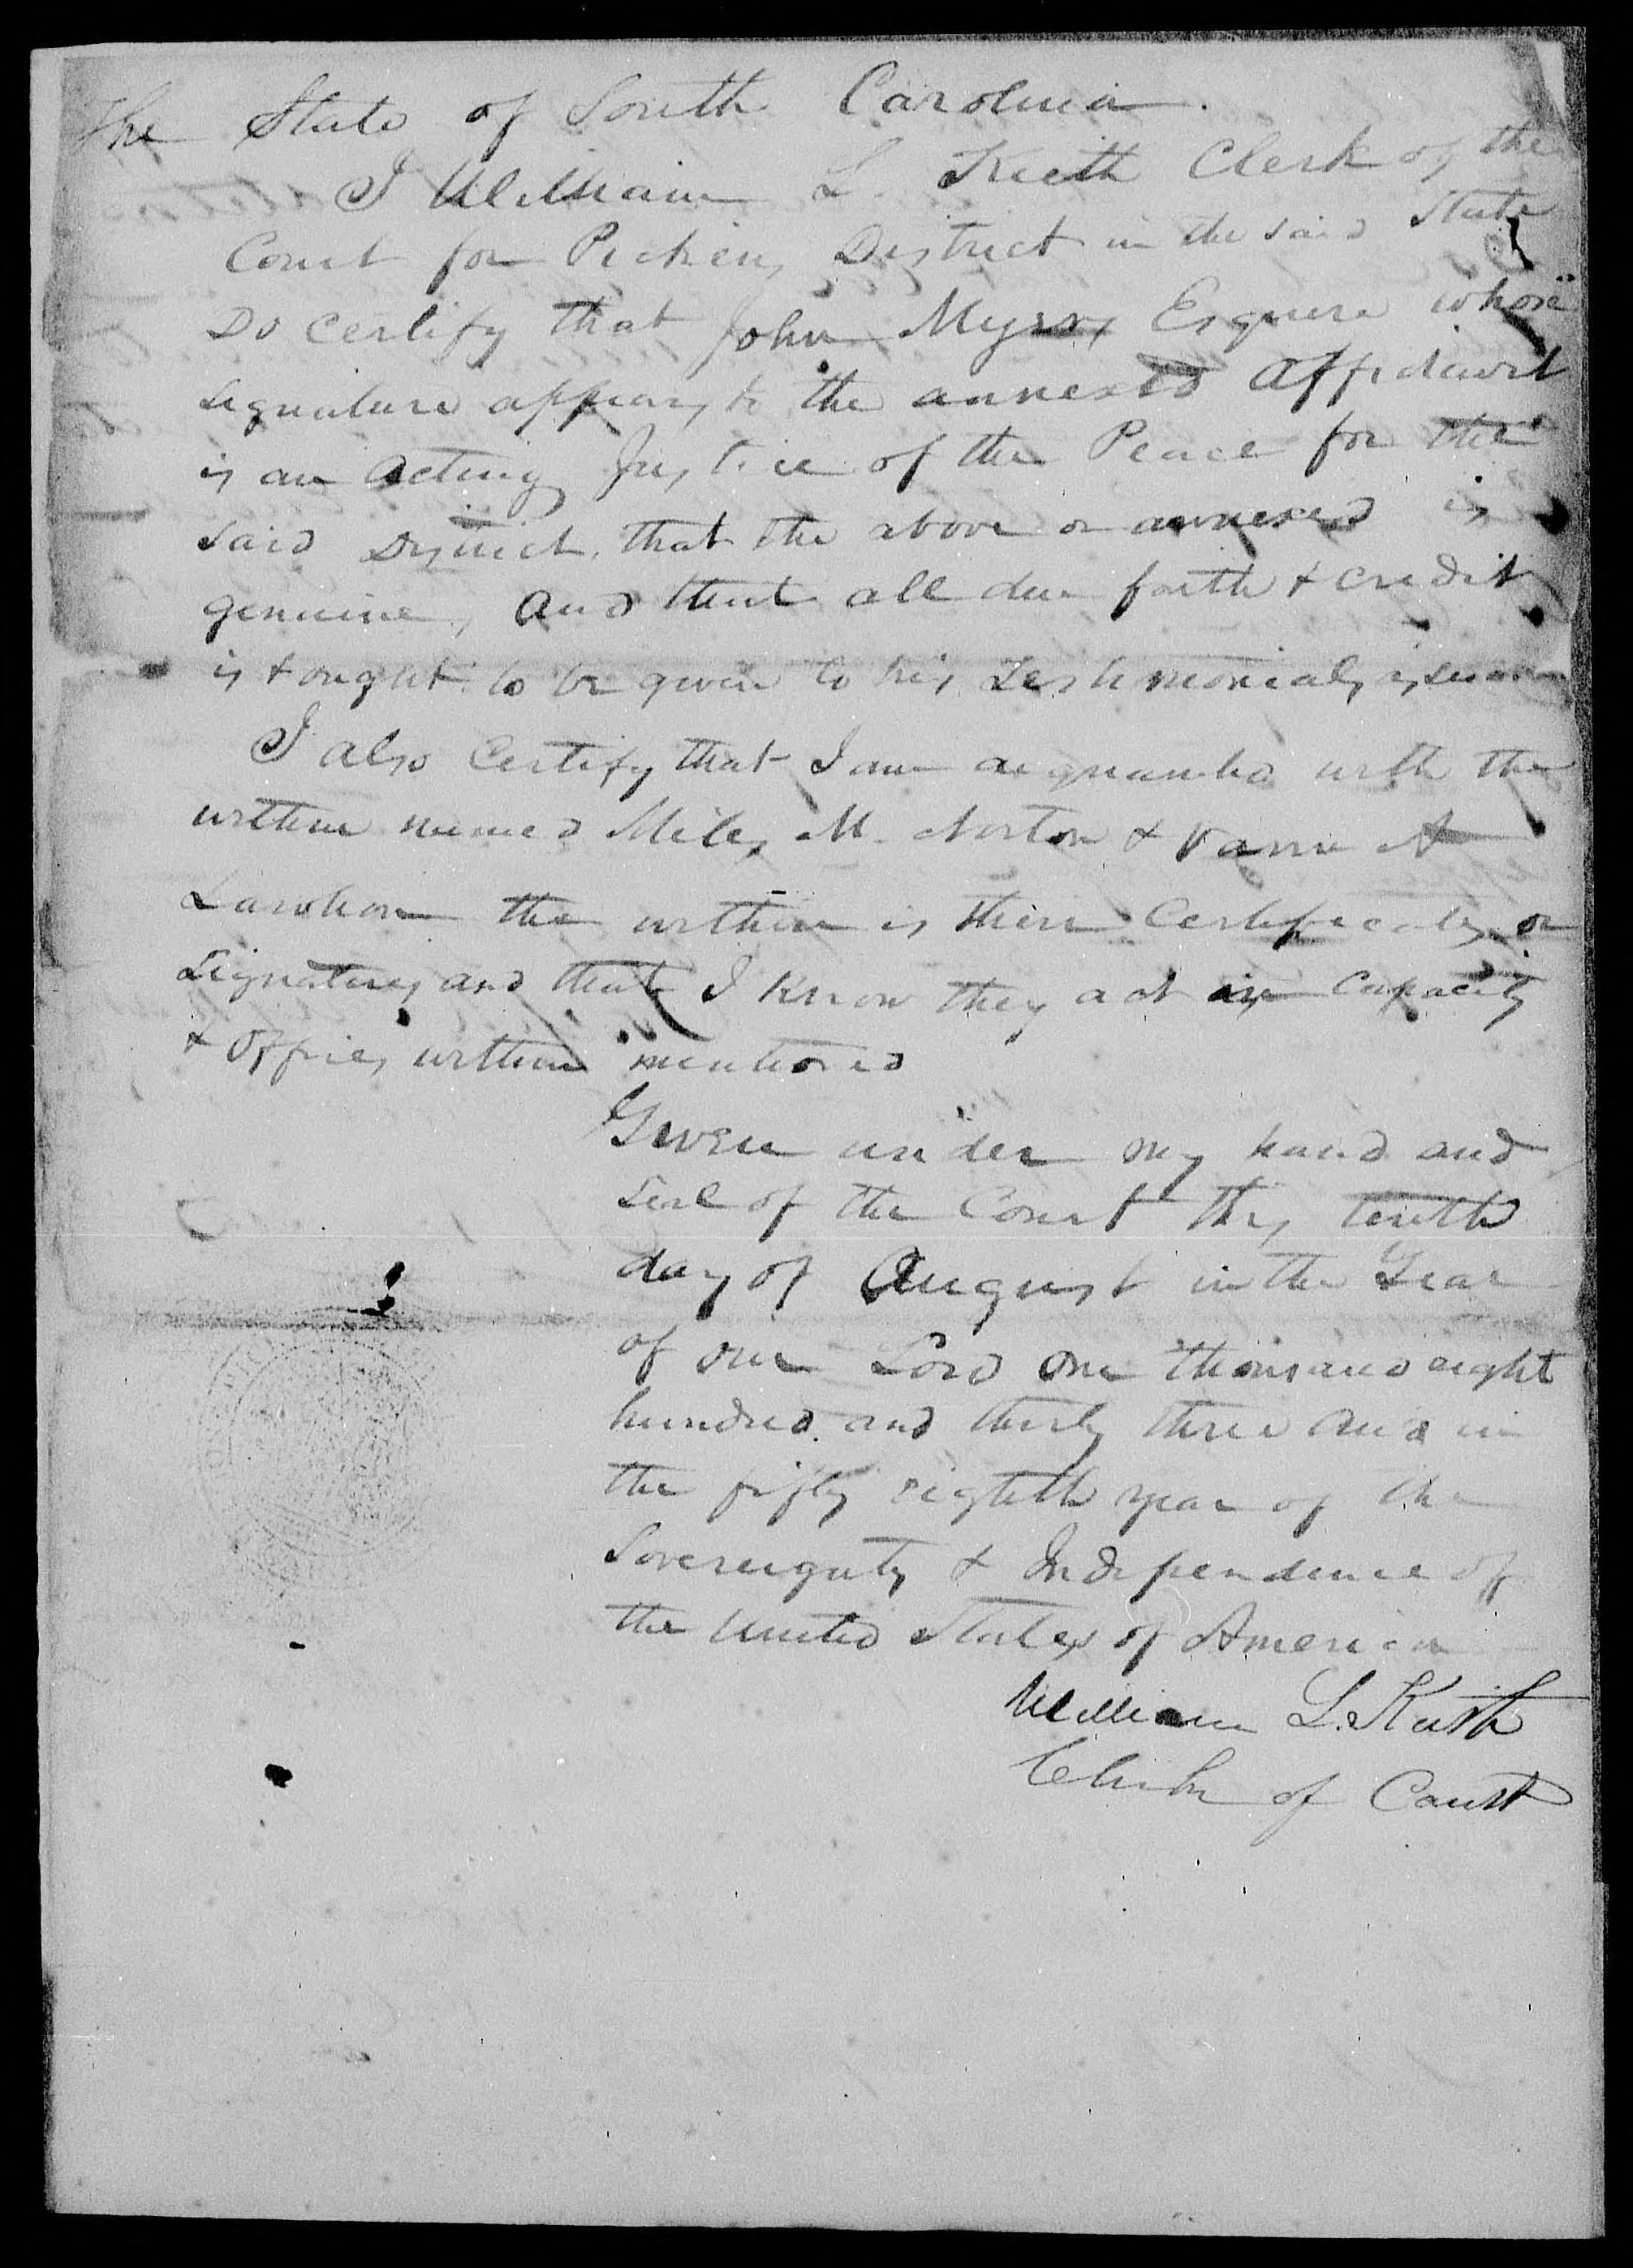 The State of South Carolina.
I William L. Keith Clerk of the
Court for Pickens District in the said State
Do Certify that John Myers Esquire whose
signature appears to the annexed Affidavit
is an acting Justice of the Peace for the
said District, that the above or annexed is
genuine, and that all due faith & credit
is & ought to be given to his Testimonials as
I also Certify that I am acquainted with the
within named Miles M. Norton & A
Lawhon the within is their Certificates or
Signatures and that I know they act in Capacity
& offices within mentioned
Given under my hand and
seal of the Court this tenth
day of August in the Year
of our Lord one thousand eight
hundred and thirty three and in
the fifty eighth year of the
Sovereignty & Independence of
the United States of America
William L. Keith
Clerk of Court